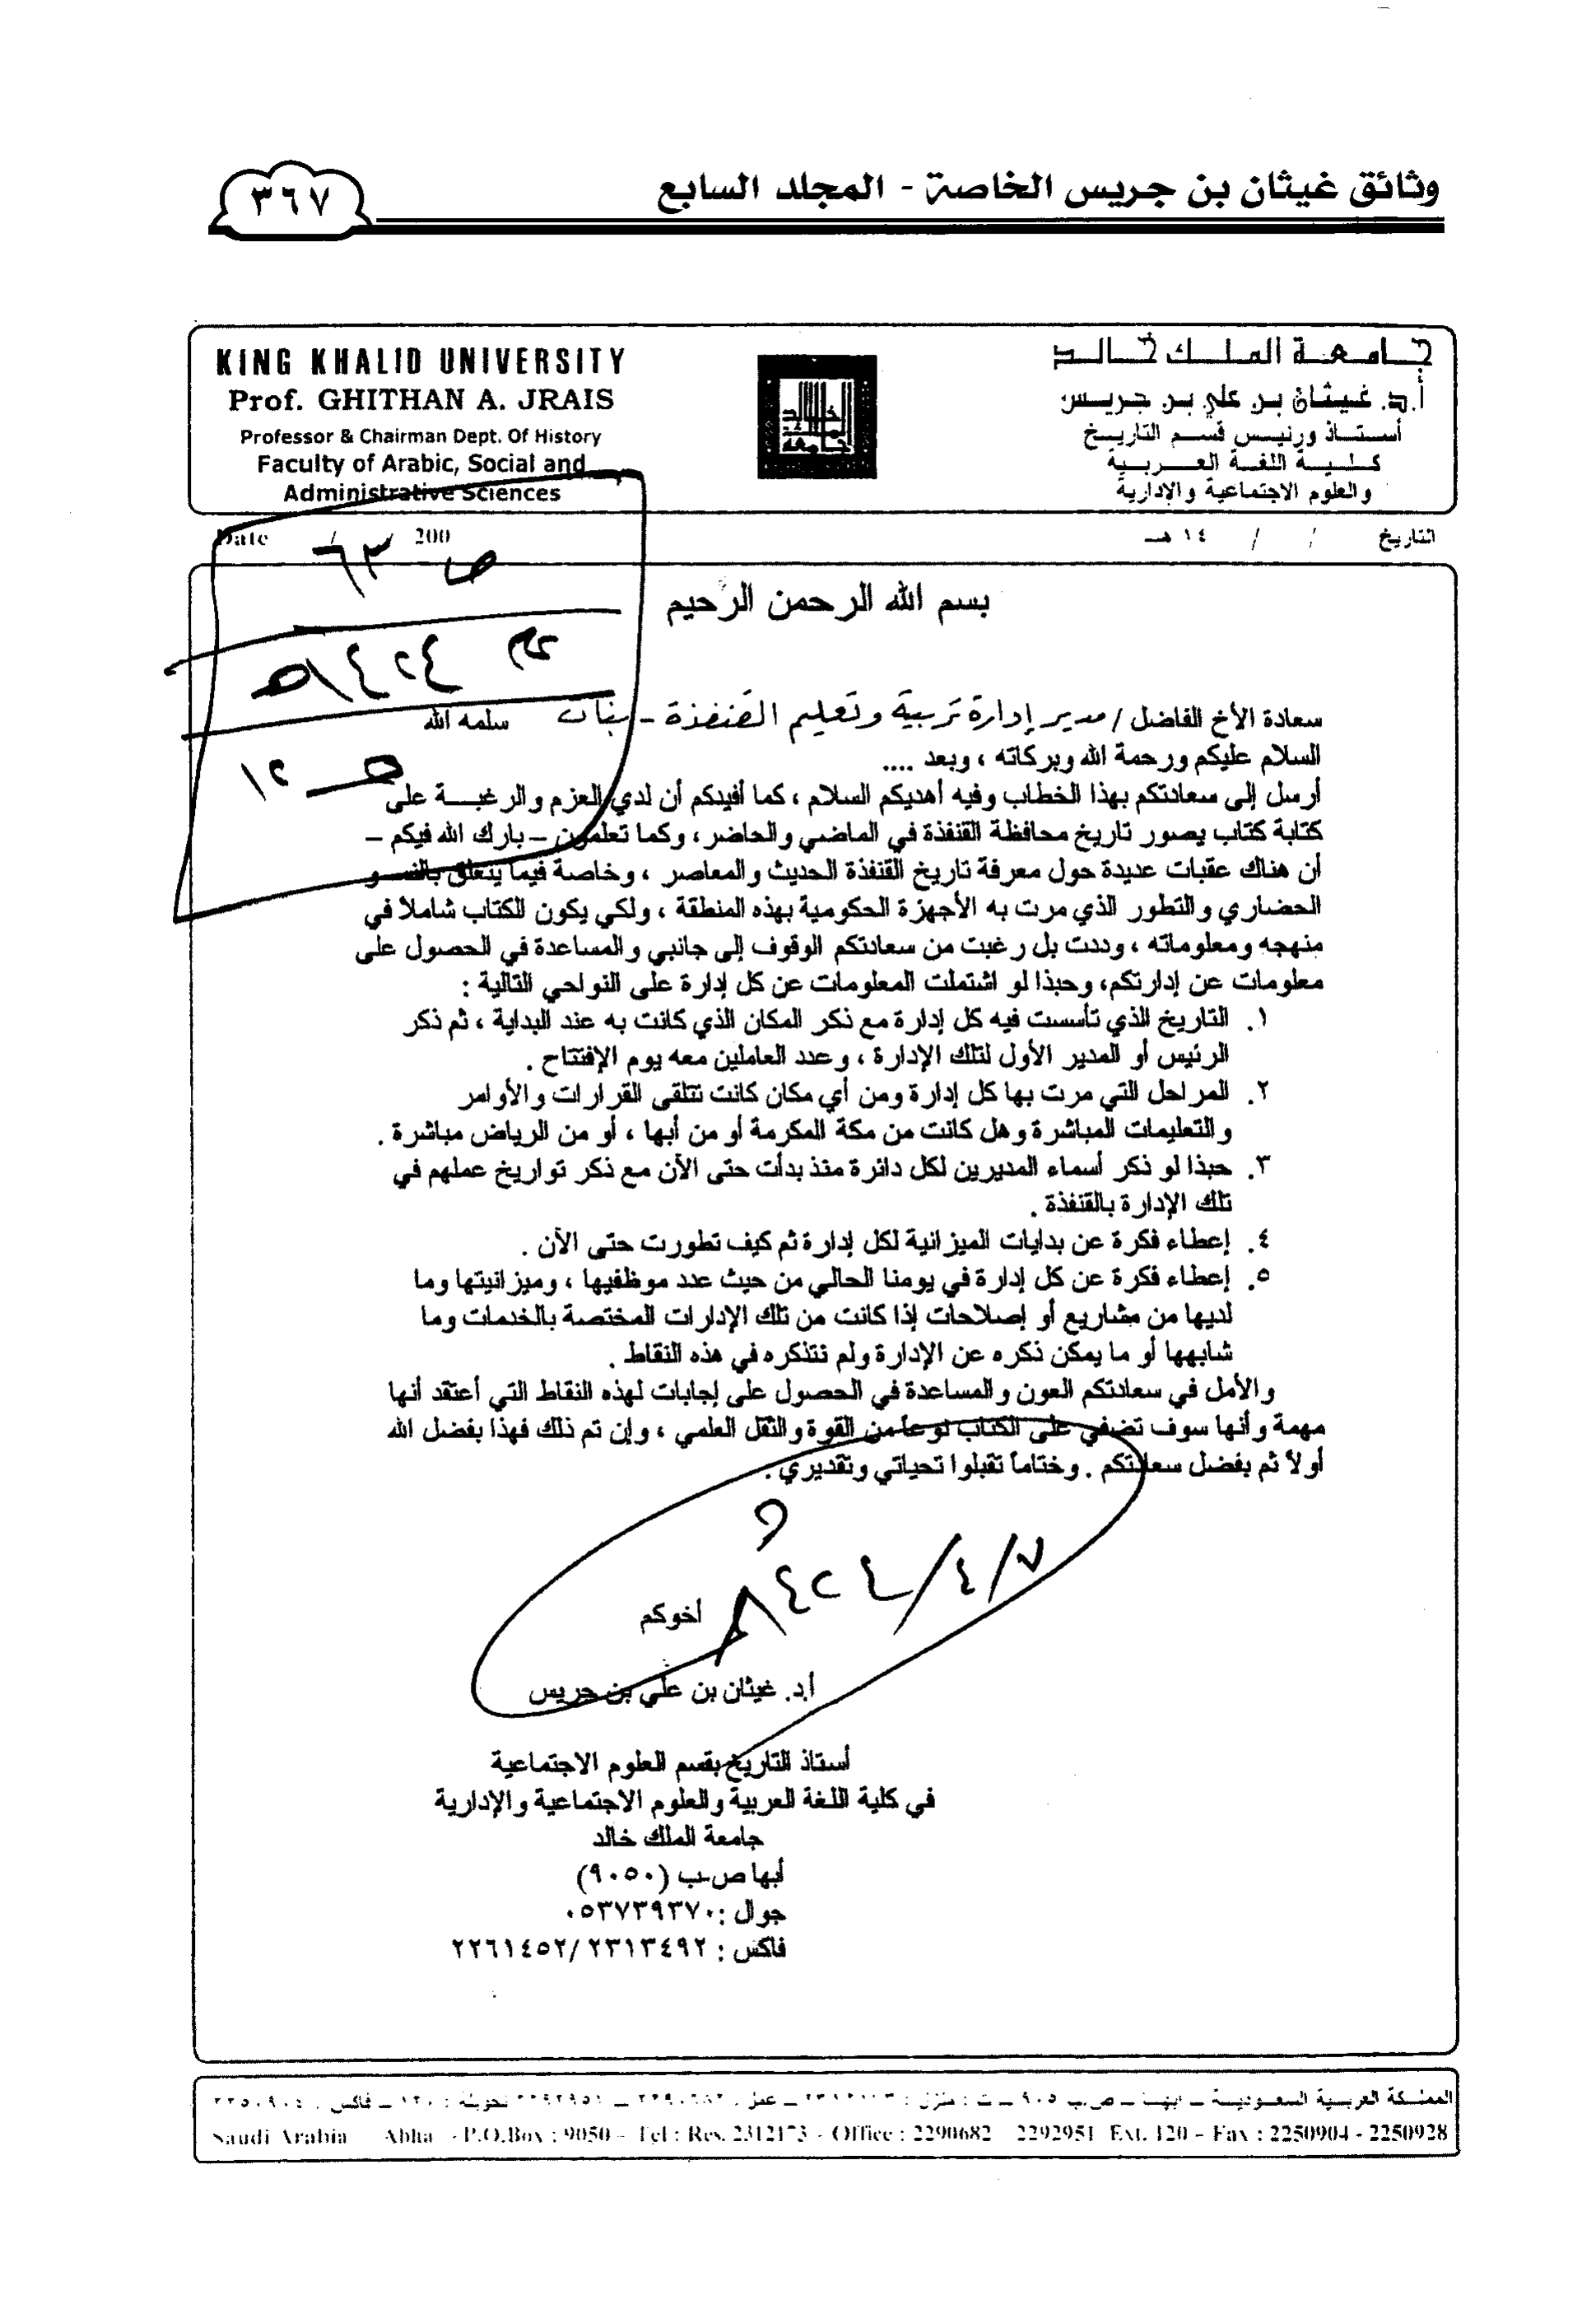 وثائق غيثان بن جريس الخاصة - المجلد السابع
٣٦٧
جامعة الملك خالد
أ.د. غيثان بن علي بن جريس
أستاذ ورئيس قسم التاريخ
كلية اللغة العربية
والعلوم الاجتماعية والإدارية
KING KHALID UNIVERSITY
Prof. GHITHAN A. JRAIS
Professor & Chairman Dept. Of History
Faculty of Arabic, Social and
Administrative Sciences
التاريخ / / ١٤ هـ
Date / / 200
ص ٦٣
بسم الله الرحمن الرحيم
سعادة الأخ الفاضل / مدير إدارة تربية وتعليم القنفذة - بنات سلمه الله
السلام عليكم ورحمة الله وبركاته ، وبعد ....
أرسل إلى سعادتكم بهذا الخطاب وفيه أهديكم السلام ، كما أفيدكم أن لدي العزم والرغبة على
كتابة كتاب يصور تاريخ محافظة القنفذة في الماضي والحاضر ، وكما تعلمون – بارك الله فيكم –
أن هناك عقبات عديدة حول معرفة تاريخ القنفذة الحديث والمعاصر ، وخاصة فيما يتعلق بالنمو
الحضاري والتطور الذي مرت به الأجهزة الحكومية بهذه المنطقة ، ولكي يكون الكتاب شاملا في
منهجه ومعلوماته ، وددت بل رغبت من سعادتكم الوقوف إلى جانبي والمساعدة في الحصول على
معلومات عن إدارتكم، وحبذا لو اشتملت المعلومات عن كل إدارة على النواحي التالية :
١. التاريخ الذي تأسست فيه كل إدارة مع ذكر المكان الذي كانت به عند البداية ، ثم ذكر
الرئيس أو المدير الأول لتلك الإدارة ، وعدد العاملين معه يوم الإفتتاح .
٢. المراحل التي مرت بها كل إدارة ومن أي مكان كانت تتلقى القرارات والأوامر
والتعليمات المباشرة وهل كانت من مكة المكرمة أو من أبها ، أو من الرياض مباشرة .
٣. حبذا لو ذكر أسماء المديرين لكل دائرة منذ بدأت حتى الآن مع ذكر تواريخ عملهم في
تلك الإدارة بالقنفذة .
٤. إعطاء فكرة عن بدايات الميزانية لكل إدارة ثم كيف تطورت حتى الآن .
٥. إعطاء فكرة عن كل إدارة في يومنا الحالي من حيث عدد موظفيها ، وميزانيتها وما
لديها من مشاريع أو إصلاحات إذا كانت من تلك الإدارات المختصة بالخدمات وما
شابهها أو ما يمكن ذكره عن الإدارة ولم نتذكره في هذه النقاط .
والأمل في سعادتكم العون والمساعدة في الحصول على إجابات لهذه النقاط التي أعتقد أنها
مهمة وأنها سوف تضفي على الكتاب نوعاً من القوة والثقل العلمي ، وإن تم ذلك فهذا بفضل الله
أولاً ثم بفضل سعادتكم . وختاماً تقبلوا تحياتي وتقديري .
٧/٤/١٤٢٤
أخوكم
أ.د. غيثان بن علي بن جريس
أستاذ التاريخ بقسم العلوم الاجتماعية
في كلية اللغة العربية والعلوم الاجتماعية والإدارية
جامعة الملك خالد
أبها ص.ب (٩٠٥٠)
جوال : ٠٥٣٧٣٩٣٧٠
فاكس : ٢٢٦١٤٥٢/٢٣١٣٤٩٢
المملكة العربية السعودية – أبها – ص.ب ٩٠٥ – ت : منزل :
Saudi Arabia Abha - P.O.Box : 9050 - Tel : Res. 2312173 - Office : 2290682 2292951 Ext. 120 - Fax : 2250904 - 2250928